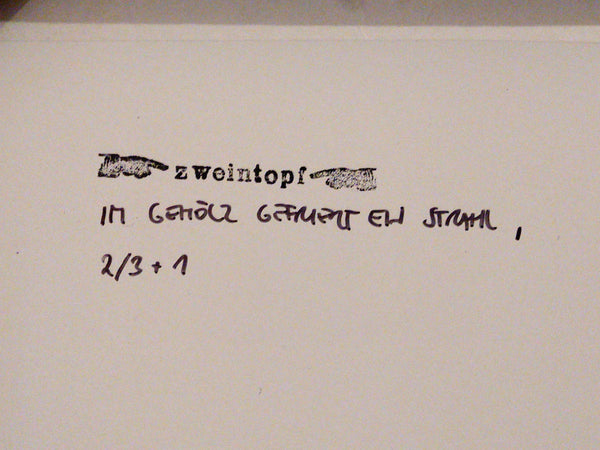 zweintopf
IM GEHÖLZ GEFRIERT EIN STRAHL,
2/3 + 1